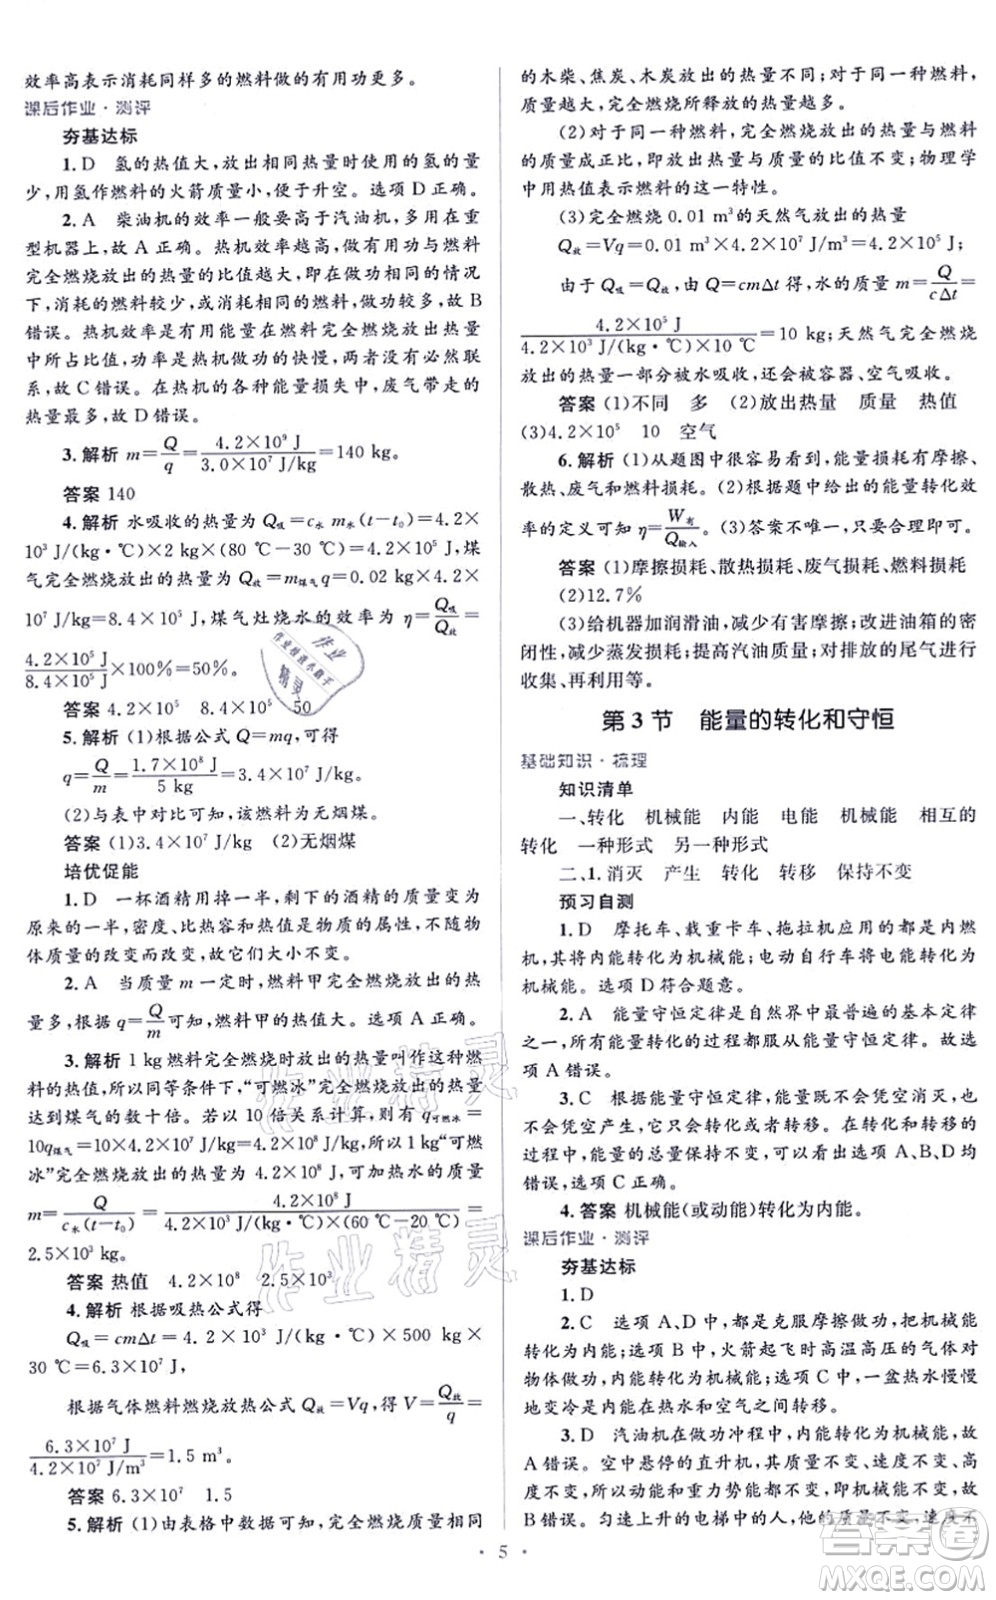 效率高表示消耗同样多的燃料做的有用功更多。
课后作业·测评
夯基达标
1. D 氢的热值大，放出相同热量时使用的氢的量
少，用氢作燃料的火箭质量小，便于升空。选项 D 正确。
2. A 柴油机的效率一般要高于汽油机，多用在重
型机器上，故 A 正确。热机效率越高，做功的能量与燃料
完全燃烧放出的热量的比值越大，即在做功相同的情况
下，消耗的燃料较少，或消耗相同的燃料做功较多，故 B
错误。热机效率是有用能量在燃料完全燃烧放出热量
中所占比值，功率是热机做功的快慢，两者没有必然联
系，故 C 错误。在热机的各种能量损失中，废气带走的
热量最多，故 D 错误。
3. 解析 m=Q/q=4.2×10⁹ J/3.0×10⁷ J/kg=140 kg。
答案 140
4. 解析 水吸收的热量为 Q吸=c水 m水(t-t₀)=4.2×
10³ J/(kg·℃)×2 kg×(80 ℃-30 ℃)=4.2×10⁵ J，煤
气完全燃烧放出的热量为 Q放=m煤气q=0.02 kg×4.2×
10⁷ J/kg=8.4×10⁵ J，煤气灶烧水的效率为 η=Q吸/Q放=
4.2×10⁵ J/8.4×10⁵ J×100%=50%。
答案 4.2×10⁵ 8.4×10⁵ 50
5. 解析 (1)根据公式 Q=mq，可得
q=Q/m=1.7×10⁸ J/5 kg=3.4×10⁷ J/kg。
(2)与表中对比可知，该燃料为无烟煤。
答案 (1)3.4×10⁷ J/kg (2)无烟煤
培优促能
1. D 一杯酒精用掉一半，剩下的酒精的质量变为
原来的一半，密度、比热容和热值是物质的属性，不随物
体质量的改变而改变，故它们大小不变。
2. A 当质量 m 一定时，燃料甲完全燃烧放出的热
量多，根据 q=Q/m可知，燃料甲的热值大。选项 A 正确。
3. 解析 1 kg 燃料完全燃烧时放出的热量叫作这种燃
料的热值，所以同等条件下，“可燃冰”完全燃烧放出的热量
达到煤气的数十倍。若以 10 倍关系计算，则有 q可燃冰=
10q煤气=10×4.2×10⁷ J/kg=4.2×10⁸ J/kg，所以 1 kg“可燃
冰”完全燃烧放出的热量为 4.2×10⁸ J，可加热水的质量
m=Q/c水(t-t₀)=4.2×10⁸ J/4.2×10³ J/(kg·℃)×(60 ℃-20 ℃)=
2.5×10³ kg。
答案 热值 4.2×10⁸ 2.5×10³
4. 解析 根据吸热公式得
Q吸=cmΔt=4.2×10³ J/(kg·℃)×500 kg×
30 ℃=6.3×10⁷ J，
根据气体燃料燃烧放热公式 Q放=Vq，得 V=Q放/q=
6.3×10⁷ J/4.2×10⁷ J/m³=1.5 m³。
答案 6.3×10⁷ 1.5
5. 解析 (1)由表格中数据可知，完全燃烧质量相同
的木柴、焦炭、木炭放出的热量不同；对于同一种燃料，
质量越大，完全燃烧所释放的热量越多。
(2)对于同一种燃料，完全燃烧放出的热量与燃料
的质量成正比，即放出热量与质量的比值不变；物理学
中用热值表示燃料的这一特性。
(3)完全燃烧 0.01 m³的天然气放出的热量
Q放=Vq=0.01 m³×4.2×10⁷ J/m³=4.2×10⁵ J；
由于 Q吸=Q放，由 Q=cmΔt 得，水的质量 m=Q/cΔt=
4.2×10⁵ J/4.2×10³ J/(kg·℃)×10 ℃=10 kg；天然气完全燃烧
放出的热量一部分被水吸收，还会被容器、空气吸收。
答案 (1)不同 多 (2)放出热量 质量 热值
(3)4.2×10⁵ 10 空气
6. 解析 (1)从题图中很容易看到，能量损耗有摩擦、
散热、废气和燃料损耗。(2)根据题中给出的能量转化效
率的定义可知 η=W有/Q输入。(3)答案不唯一，只要合理即可。
答案 (1)摩擦损耗、散热损耗、废气损耗、燃料损耗
(2)12.7%
(3)给机器加润滑油，减少有害摩擦；改进油箱的密
闭性，减少蒸发损耗；提高汽油质量；对排放的尾气进行
收集、再利用等。
第 3 节 能量的转化和守恒
基础知识·梳理
知识清单
一、转化 机械能 内能 电能 机械能 相互的
转化 一种形式 另一种形式
二、1. 消灭 产生 转化 转移 保持不变
预习自测
1. D 摩托车、载重卡车、拖拉机应用的都是内燃
机，其将内能转化为机械能；电动自行车将电能转化为
机械能。选项 D 符合题意。
2. A 能量守恒定律是自然界中最普遍的基本定律
之一，所有能量转化的过程都服从能量守恒定律。故选
项 A 错误。
3. C 根据能量守恒定律，能量既不会凭空消灭，也
不会凭空产生，只能发生转化或者转移。在转化和转移
过程中，能量的总量保持不变，所以选项 A、B、D 均
错误，选项 C 正确。
4. 答案 机械能(或动能)转化为内能。
课后作业·测评
夯基达标
1. D
2. C 选项 A、D 中，都是克服摩擦做功，把机械能
转化为内能；选项 B 中，火箭起飞时高温高压的气体对
物体做功，内能转化为机械能；选项 C 中，一盆热水慢慢
地变冷是内能在热水和空气之间转移。
3. D 汽油机在做功冲程中，内能转化为机械能，故
A 错误。空中悬停的直升机，其质量不变、速度不变、高
度不变，所以动能和重力势能都不变，即机械能不变，故
B 错误。匀速上升的电梯中的人，他的质量不变，速度不
· 5 ·
作业精灵
作业精灵
作业精灵
作业检查小助手
答案圈
MXQE.COM